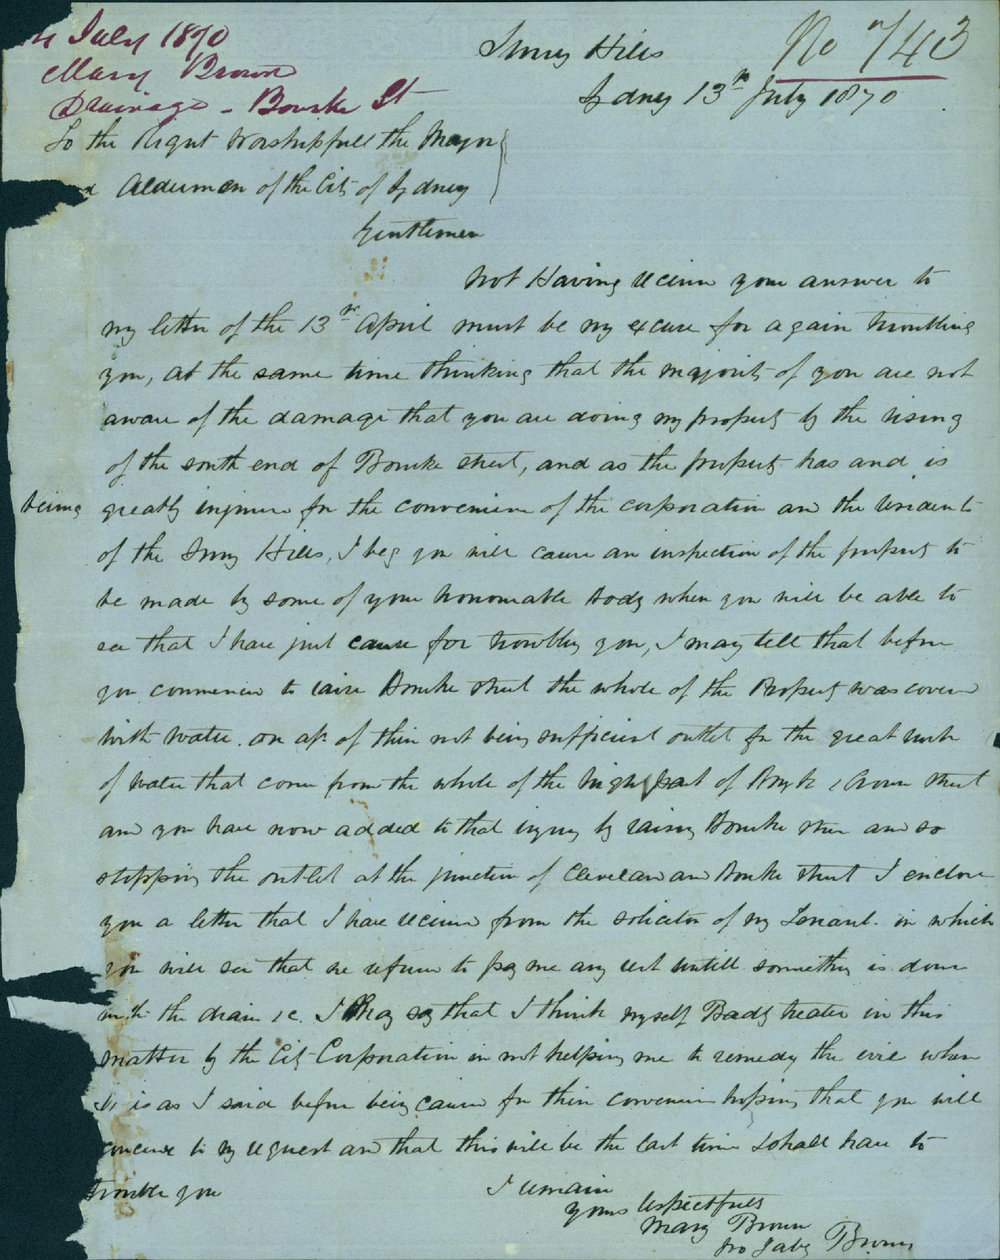 14 July 1870
Mary Brown
Drainage - Bourke St
No 743
Surry Hills
Sydney 13th July 1870
To the Right Worshipfull the Mayor
Aldermen of the City of Sydney
Gentlemen
Not Having received your answer to
my letter of the 13th April must be my excuse for again troubling
you, at the same time thinking that the majority of you are not
aware of the damage that you are doing my property by the rising
of the south end of Bourke street, and as the property has and is
being greatly injured for the convenience of the corporation and the residents
of the Surry Hills, I beg you will cause an inspection of the property to
be made by some of your honourable Body when you will be able to
see that I have just cause for troubling you, I may tell that before
you commenced to raise Bourke street the whole of the Property was covered
with water. on a/c of their not being sufficient outlet for the great rush
of water that come from the whole of the high part of & Crown street
and you have now added to that injury by raising Bourke street and so
stopping the outlet at the junction of Cleveland and Bourke street I enclose
you a letter that I have received from the solicitor of my Tenant. in which
you will see that he refuses to pay me any rent untill something is done
with the drain &c. I may say that I think myself Badly treated in this
matter by the City Corporation in not helping me to remedy the evil when
it is as I said before being caused for their convenience hoping that you will
concede to my request and that this will be the last time I shall have to
trouble you
I remain
yours respectfully
Mary Brown
pro Brown